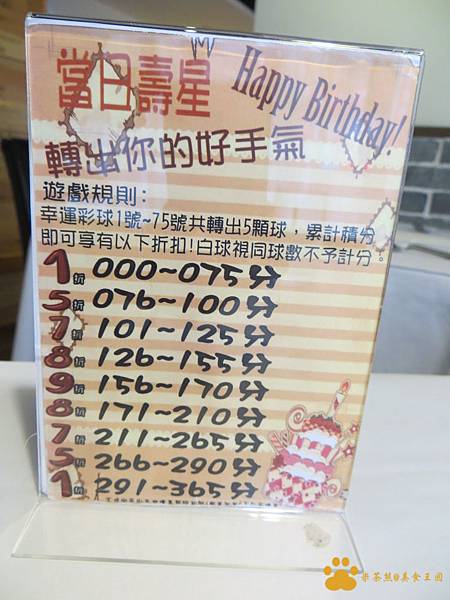 當日壽星
Happy Birthday!
轉出你的好手氣
遊戲規則:
幸運彩球1號~75號共轉出5顆球,累計積分
即可享有以下折扣!白球視同球數不予計分。
1折 000~075分
5折 076~100分
7折 101~125分
8折 126~155分
9折 156~170分
8折 171~210分
7折 211~265分
5折 266~290分
1折 291~365分
@美食王國